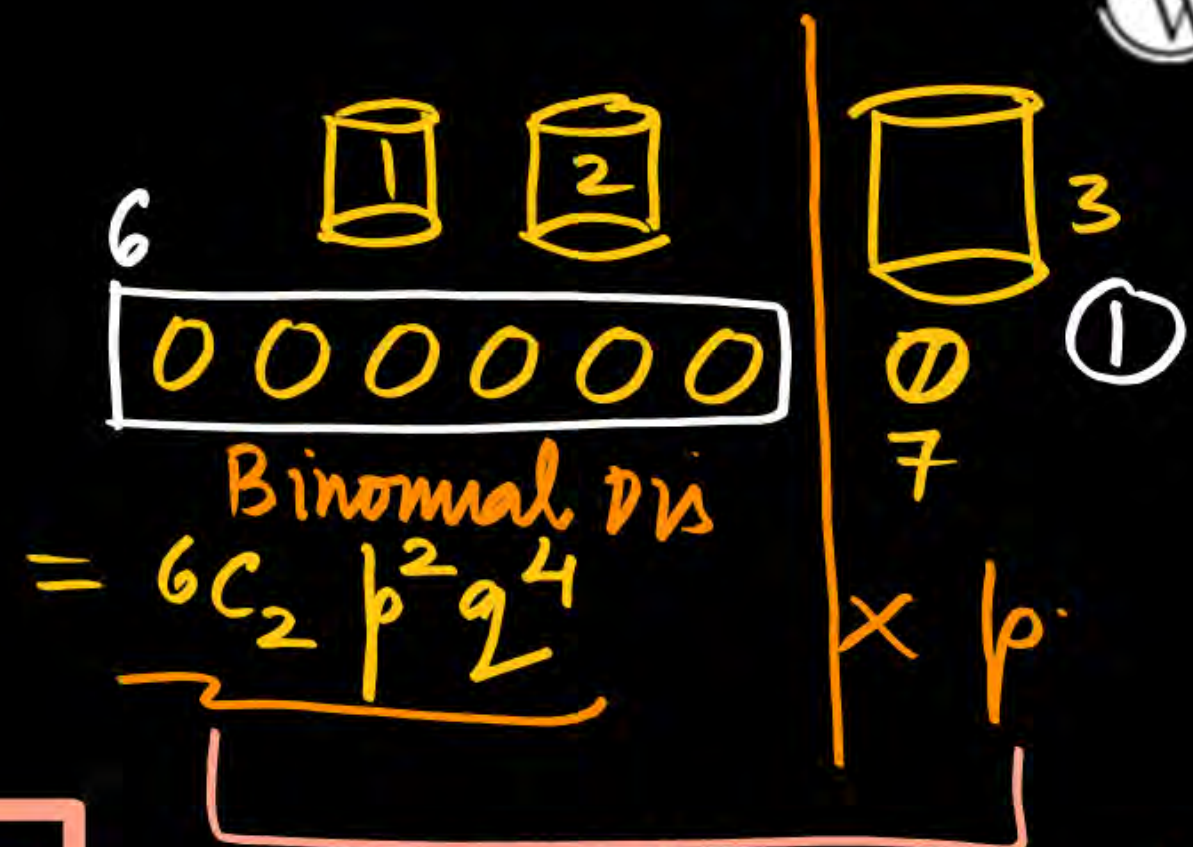 W
1 2 3
6
0 0 0 0 0 0 1
7
Binomial Dis
= ⁶C₂ p² q⁴ × p